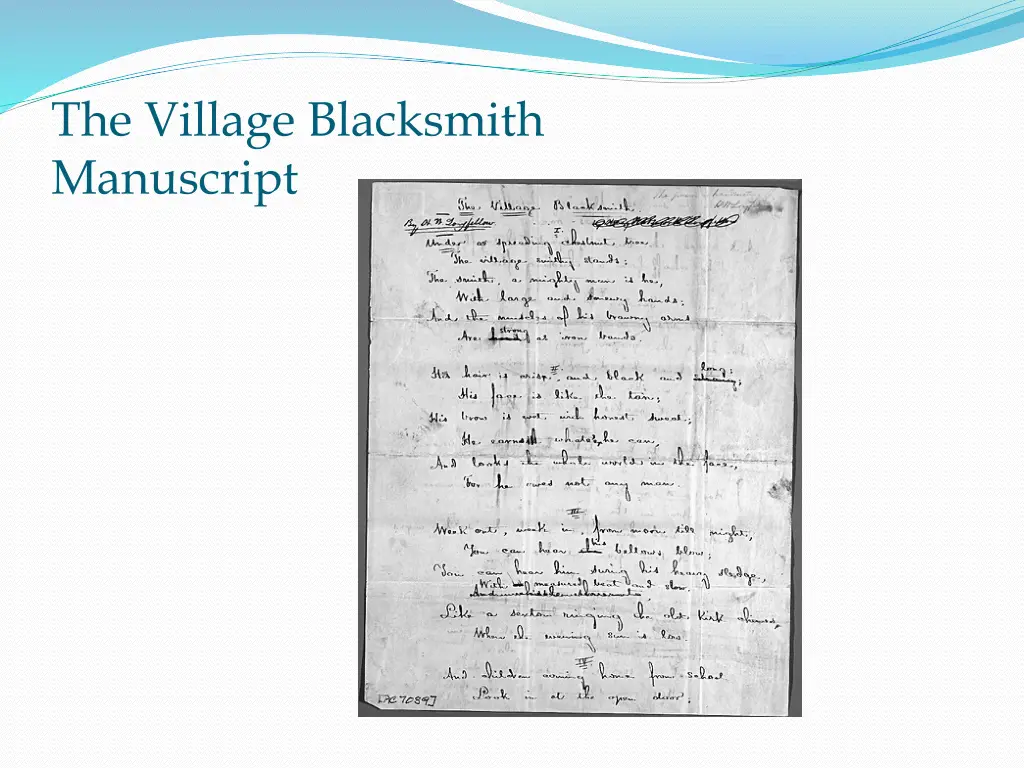 The Village Blacksmith
Manuscript
The Village Blacksmith.
By H. W. Longfellow.
I.
Under a spreading chestnut tree,
The village smithy stands;
The smith, a mighty man is he,
With large and sinewy hands;
And the muscles of his brawny arms
Are strong as iron bands.
II.
His hair is crisp, and black and long;
His face is like the tan;
His brow is wet with honest sweat;
He earns whate'er he can,
And looks the whole world in the face,
For he owes not any man.
III
Week out, week in, from morn till night,
You can hear his bellows blow;
You can hear him swing his heavy sledge,
With measured beat and slow,
Like a sexton ringing the old kirk chimes,
When the evening sun is low.
IV
And children coming home from school
Look in at the open door;
[AC7039]